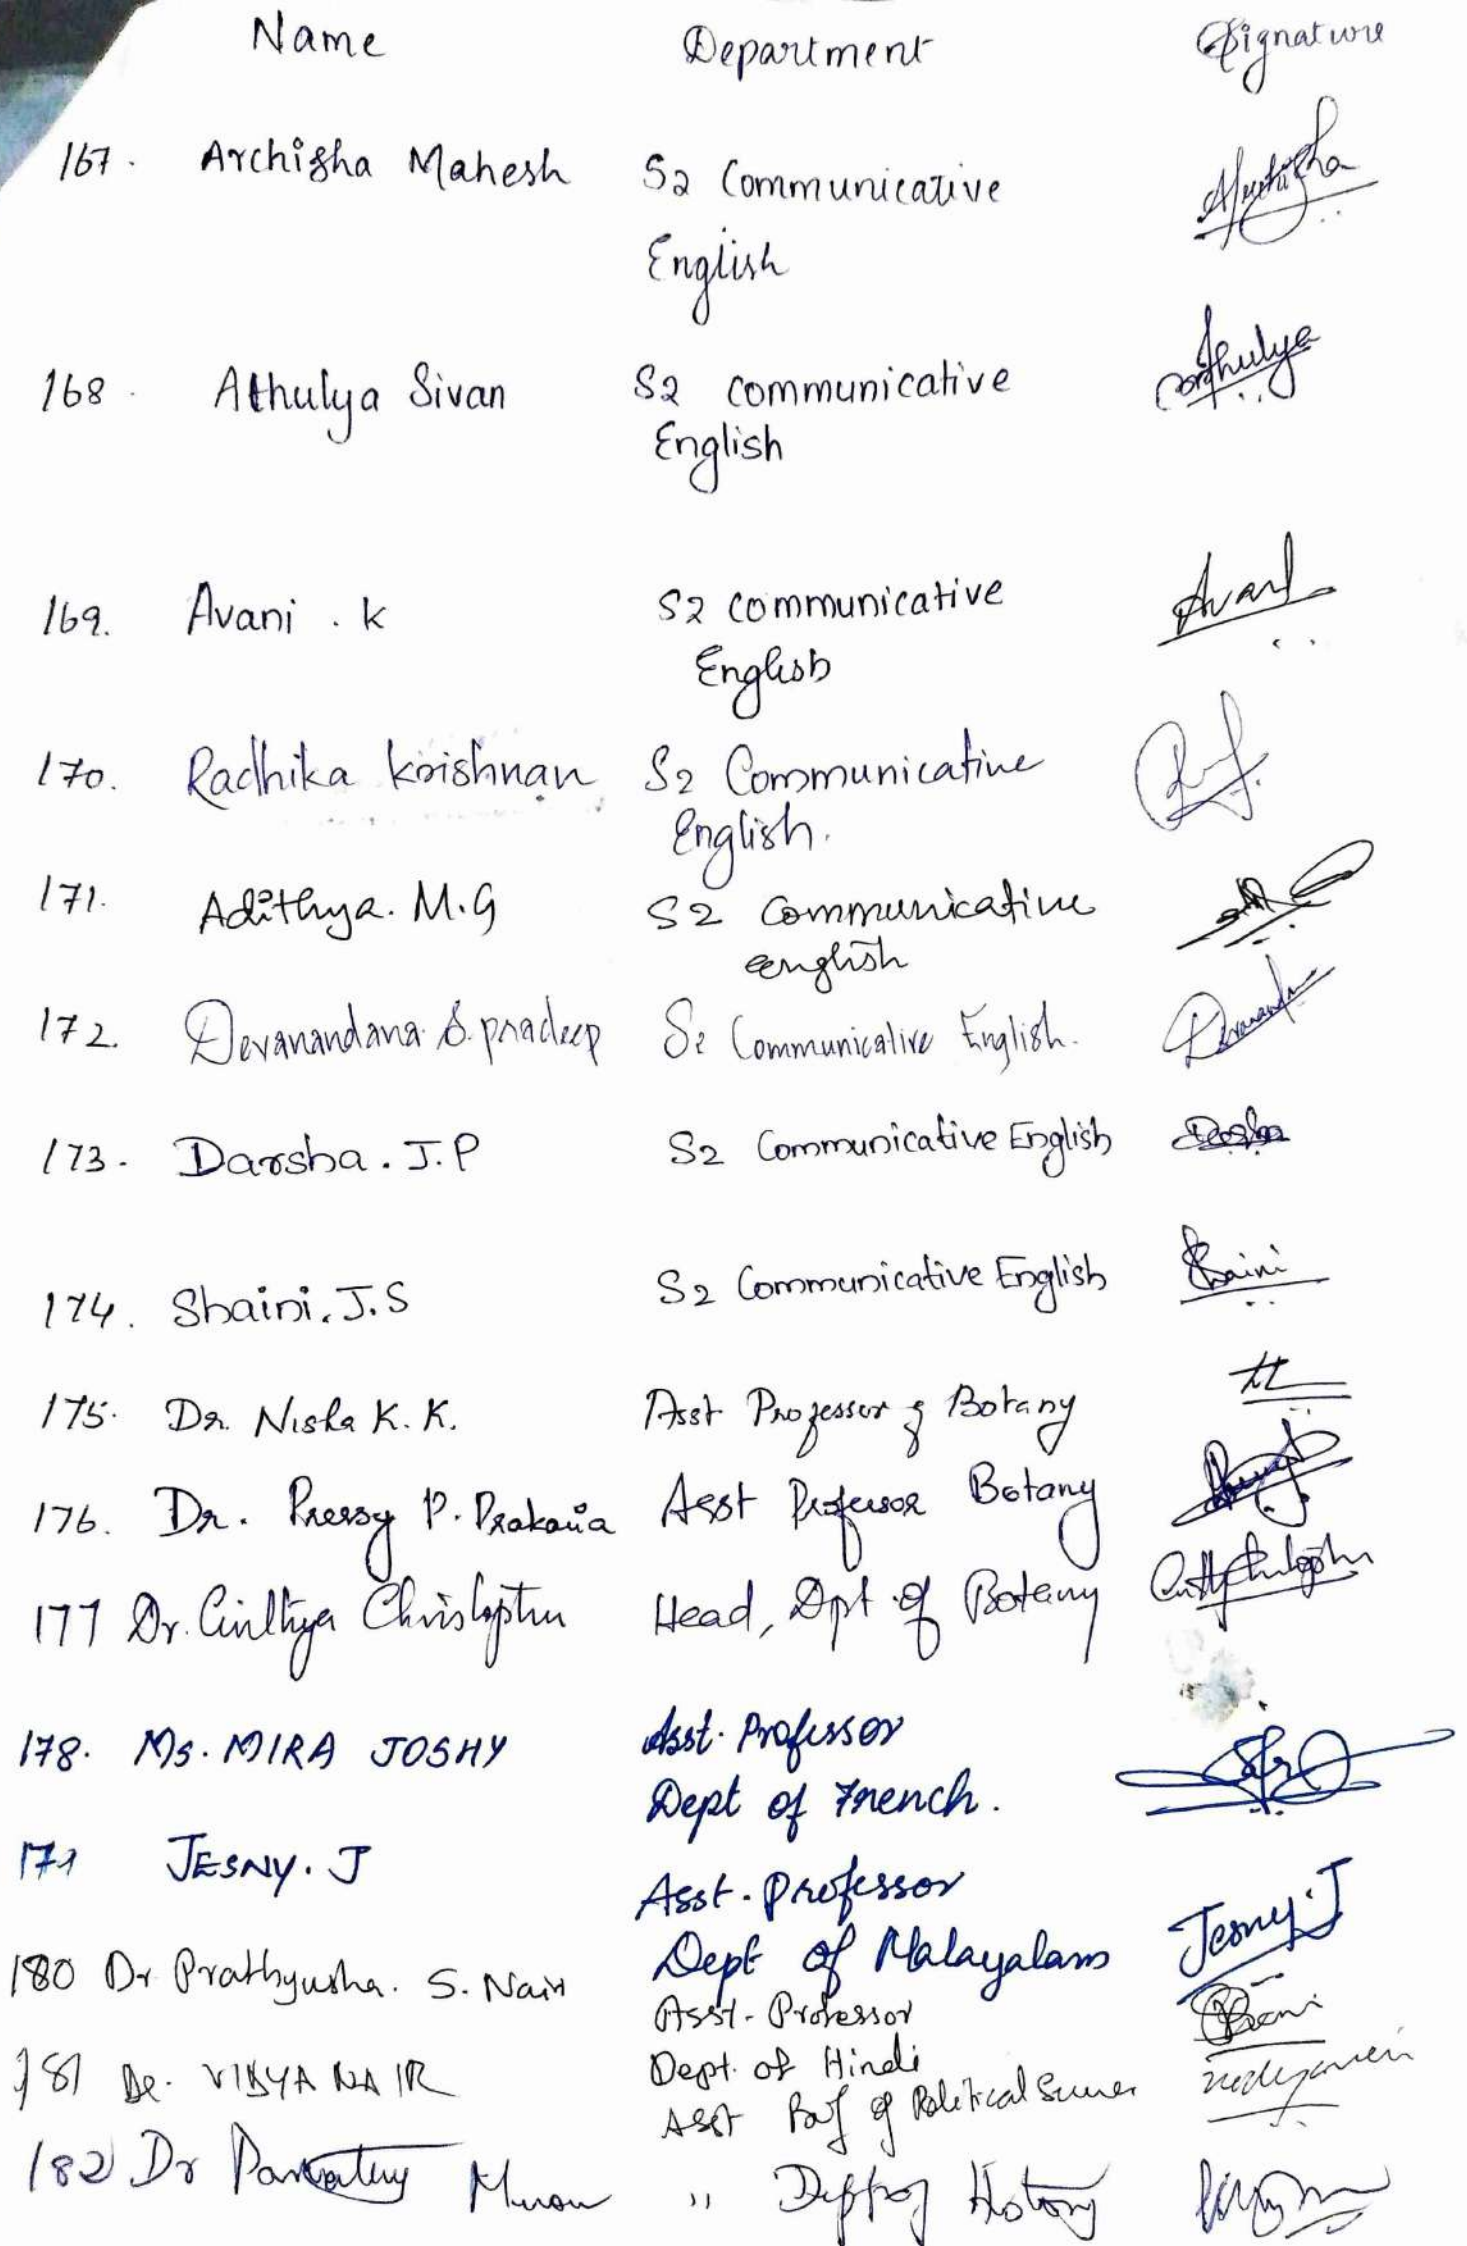 Name Department Signature
167. Archisha Mahesh S2 Communicative Archisha
English
168. Athulya Sivan S2 communicative Athulya
English
169. Avani . K S2 communicative Avani
English
170. Radhika Krishnan S2 Communicative
English.
171. Adithya. M.G S2 communicative
english
172. Devanandana S. pradeep S2 Communicative English. Devanandana
173. Darsha. J.P S2 Communicative English Darsha
174. Shaini. J.S S2 Communicative English Shaini
175. Dr. Nisha K. K. Asst Professor of Botany
176. Dr. Pressy P. Prakasia Asst Professor Botany
177 Dr. Cinthya Christopher Head, Dpt of Botany
178. Ms. MIRA JOSHY Asst. Professor
Dept of French.
179 JESNY. J Asst. Professor
Dept of Malayalam Jesny. J
180 Dr Prathyusha. S. Nair Asst. Professor
Dept. of Hindi
181 Dr. VIDYA NAIR Asst Prof of Political Science
182 Dr Parvathy Menon " Dept of History